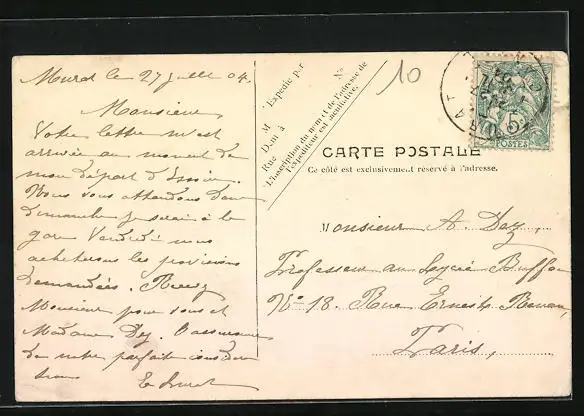 Murat le 27 juillet 04.
Monsieur
Votre lettre m'est
arrivée au moment de
mon départ d'
Nous vous attendons donc
dimanche je serai à la
gare Vendredi nous
achèterons les provisions
demandées. Recevez
Monsieur pour vous et
Madame Dey. L'assurance
de notre parfaite considéra
tion
E.
M
Expédié par
Dem à
Rue
No
L'inscription du nom et de l'adresse de
l'expéditeur est facultative.
10
5c
POSTES
CARTE POSTALE
Ce côté est exclusivement réservé à l'adresse.
Monsieur A. Dey,
Professeur au Lycée Buffon
No 18. Rue Ernest Renan,
Paris,